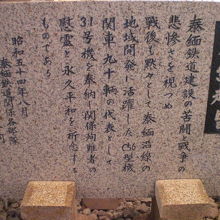 泰緬鉄道建設の苦闘と戦争の
悲惨さを秘め
戦後も黙々と泰緬沿線の
地域開発に活躍したC56型機
関車九十輌の代表として
31号機を奉納し関係殉難者の
慰霊と永久平和を祈念する
ものである
昭和五十四年八月
泰緬鉄道関係